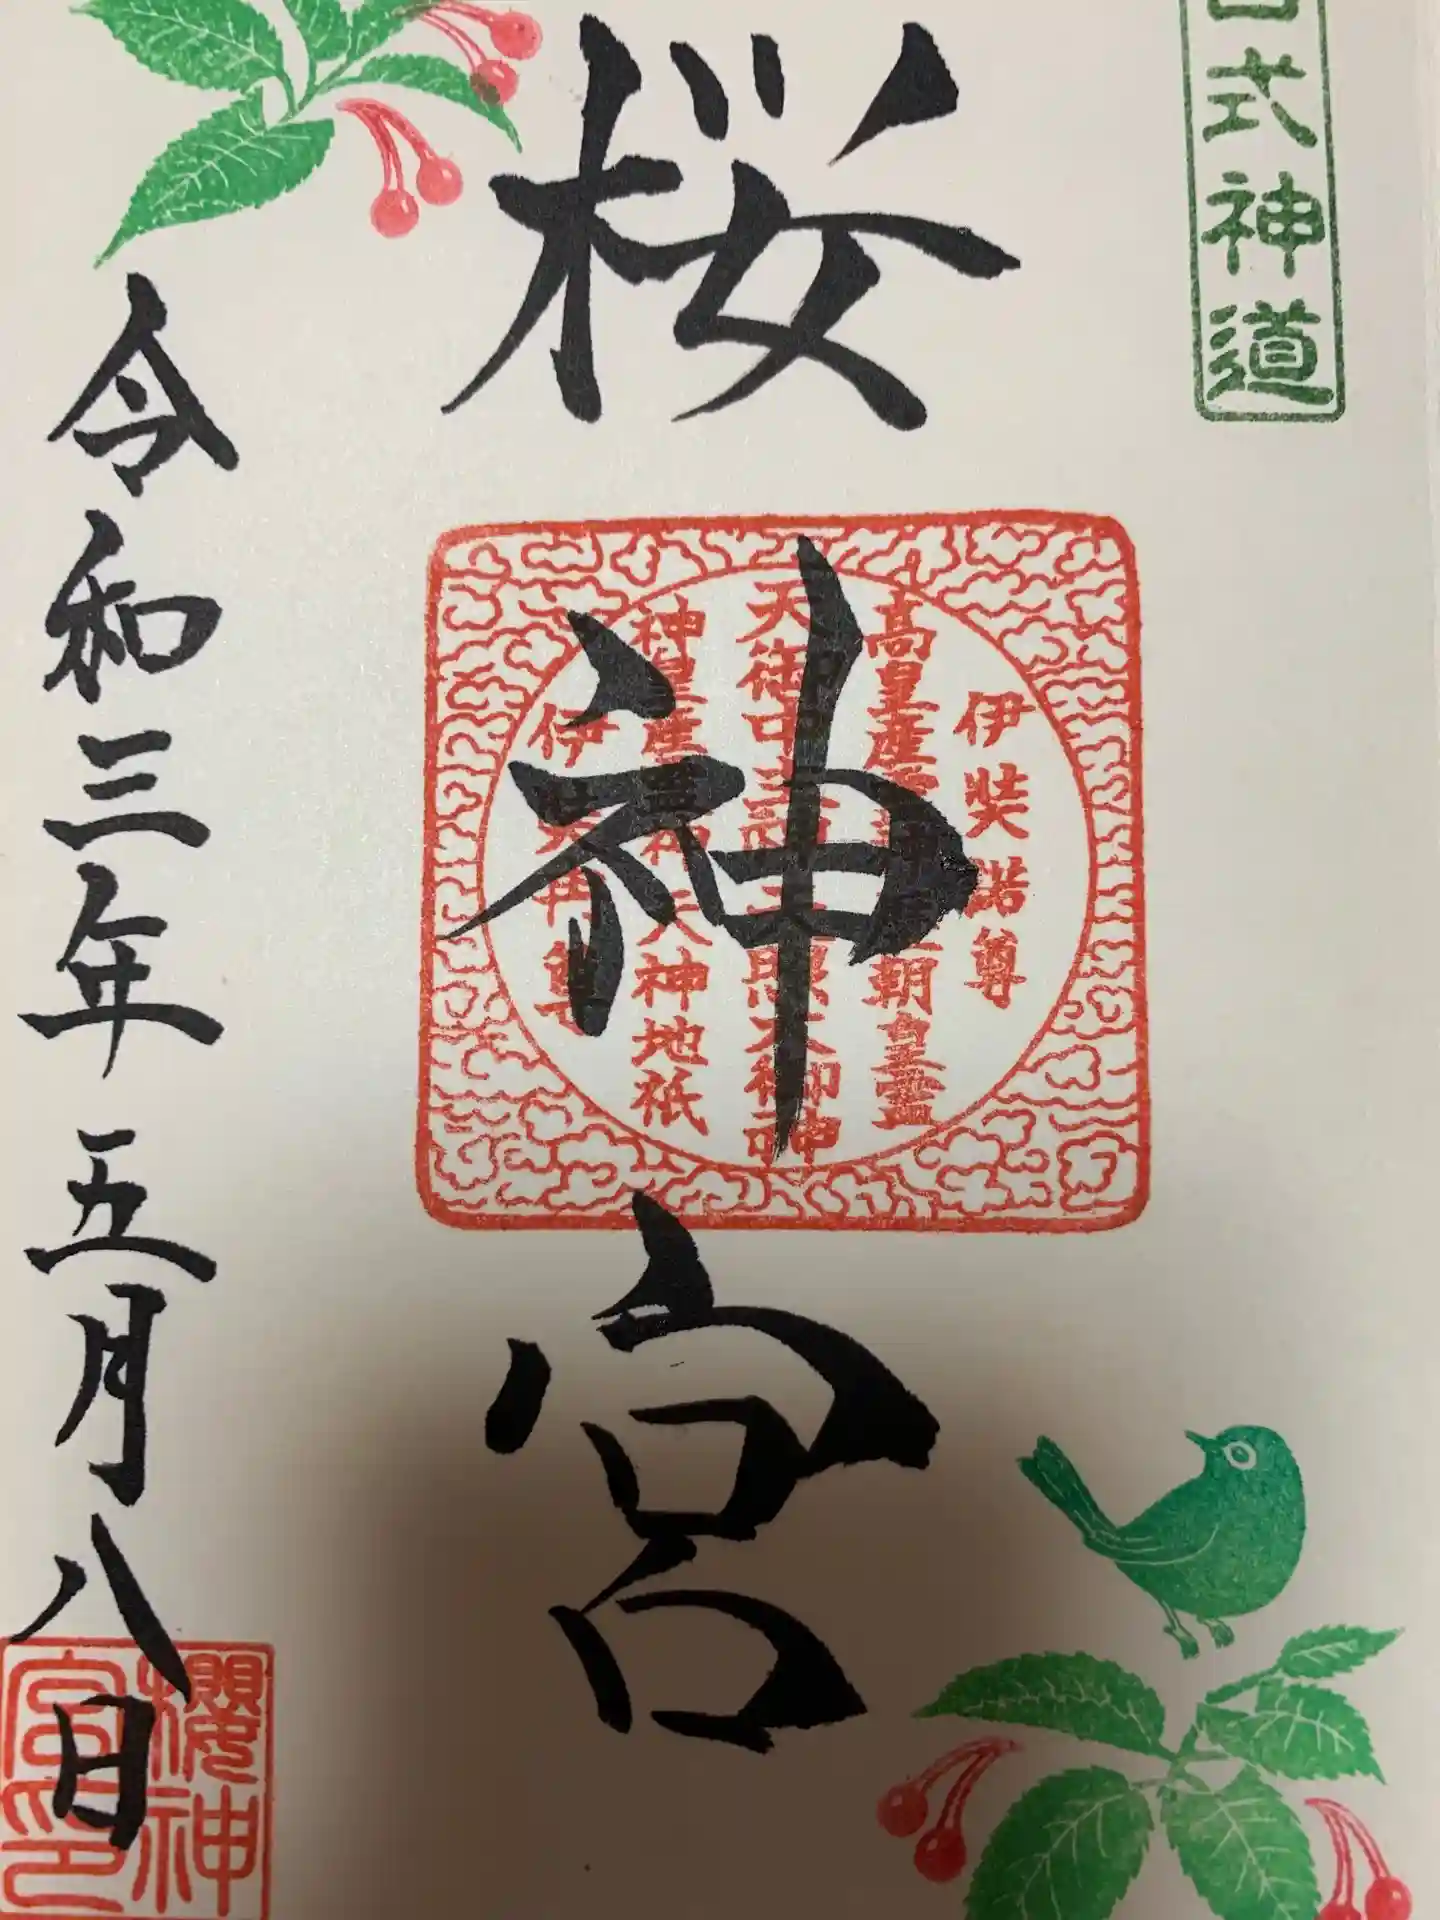 古式神道
桜神宮
伊奘諾尊
高皇産霊神歴朝皇霊
天御中主神天照大御神
神皇産霊神天神地祇
伊奘冉尊
令和三年五月八日
櫻神
宮印